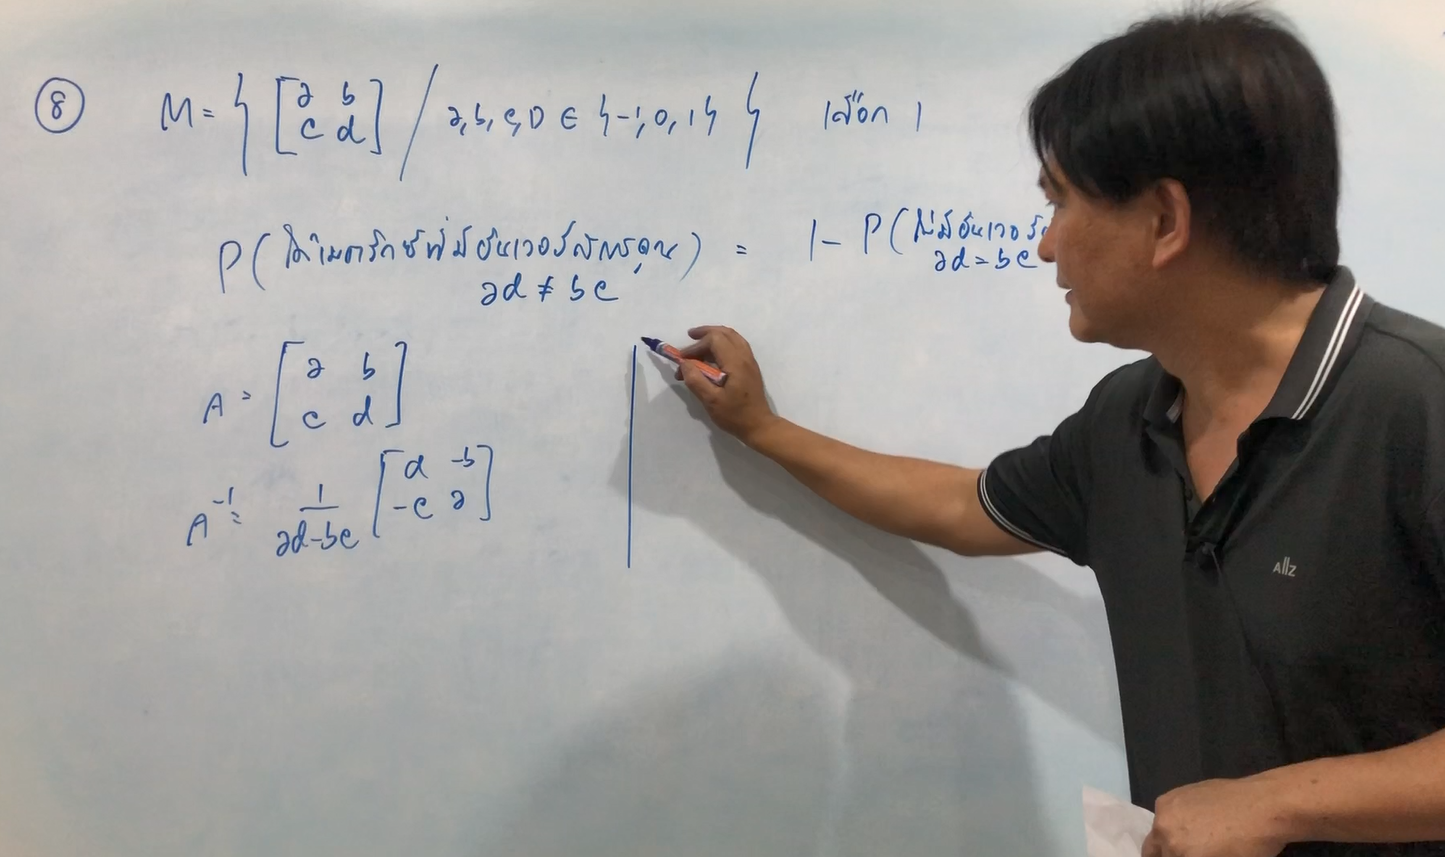 ⑧ M = { [a b / a, b, c, D ∈ {-1, 0, 1} } เลือก 1
c d]
P(ได้เมตริกซ์ที่มีอินเวอร์สการคูณ) = 1 - P(ไม่มีอินเวอร์
ad ≠ bc ad = bc
A = [a b
c d]
A⁻¹ = 1 [d -b
ad-bc -c a]
Allz